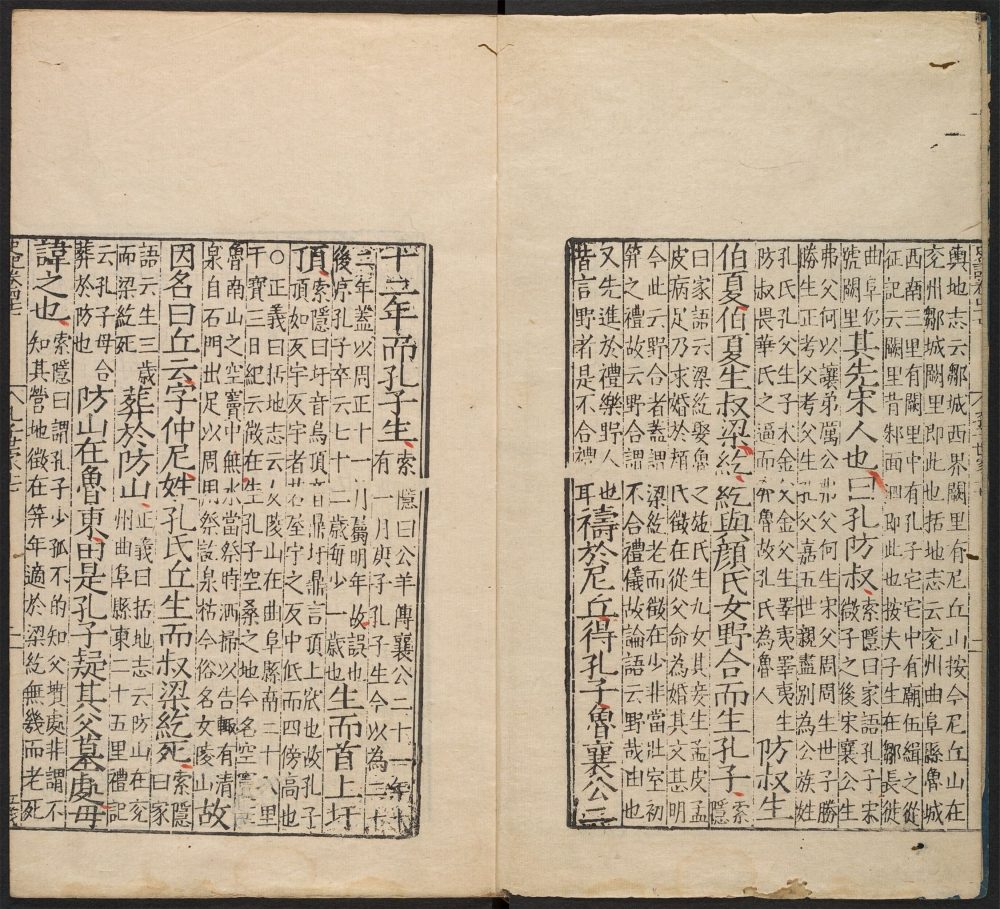 輿地志云鄒城西界闕里有尼丘山按今尼丘山在
兗州鄒城闕里即此也括地志云兗州曲阜縣魯城
西南三里有闕里中有孔子宅宅中有廟伍緝之從
征記云闕里背邾面泗即此也按夫子生在鄒長徙
曲阜仍
號闕里
其先宋人也曰孔防叔
索隱曰家語孔子宋
微子之後宋襄公生
弗父何以讓弟厲公弗父何生宋父周周生世子勝
勝生正考父考父生孔父嘉五世親盡別為公族姓
孔氏孔父生子木金父金父生睪夷睪夷生
防叔畏華氏之逼而奔魯故孔氏為魯人
防叔生
伯夏伯夏生叔梁紇紇與顏氏女野合而生孔子
索
隱
曰家語云梁紇娶魯之施氏生九女其妾生孟皮孟
皮病足乃求婚於顏氏徵在從父命為婚其文甚明
今此云野合者蓋謂梁紇老而徵在少非當壯室初
笄之禮故云野合謂不合禮儀故論語云野哉由也
又先進於禮樂野人也
昔言野者是不合禮耳
禱於尼丘得孔子魯襄公二
十二年而孔子生
索隱曰公羊傳襄公二十一年十
有一月庚子孔子生今以為二十
二年蓋以周正十一月屬明年故誤也
後序孔子卒云七十二歲每少一歲也
生而首上圩
頂
索隱曰圩音烏頂音鼎圩頂言頂上窊也故孔子
頂如反宇反宇者若屋宇之反中低而四傍高也
○正義曰括地志云女陵山在曲阜縣南二十八里
干寶三日紀云徵在生孔子空桑之地今名空竇在
魯南山之空竇中無水當祭時洒掃以告輒有清
泉自石門出足以周用祭訖泉枯今俗名女陵山
故
因名曰丘云字仲尼姓孔氏丘生而叔梁紇死
索隱
曰家
語云生三歲
而梁紇死
葬於防山
正義曰括地志云防山在兗
州曲阜縣東二十五里禮記
云孔子母合
葬於防也
防山在魯東由是孔子疑其父墓處母
諱之也
索隱曰謂孔子少孤不的知父墳處非謂不
知其塋地徵在笄年適於梁紇無幾而老死